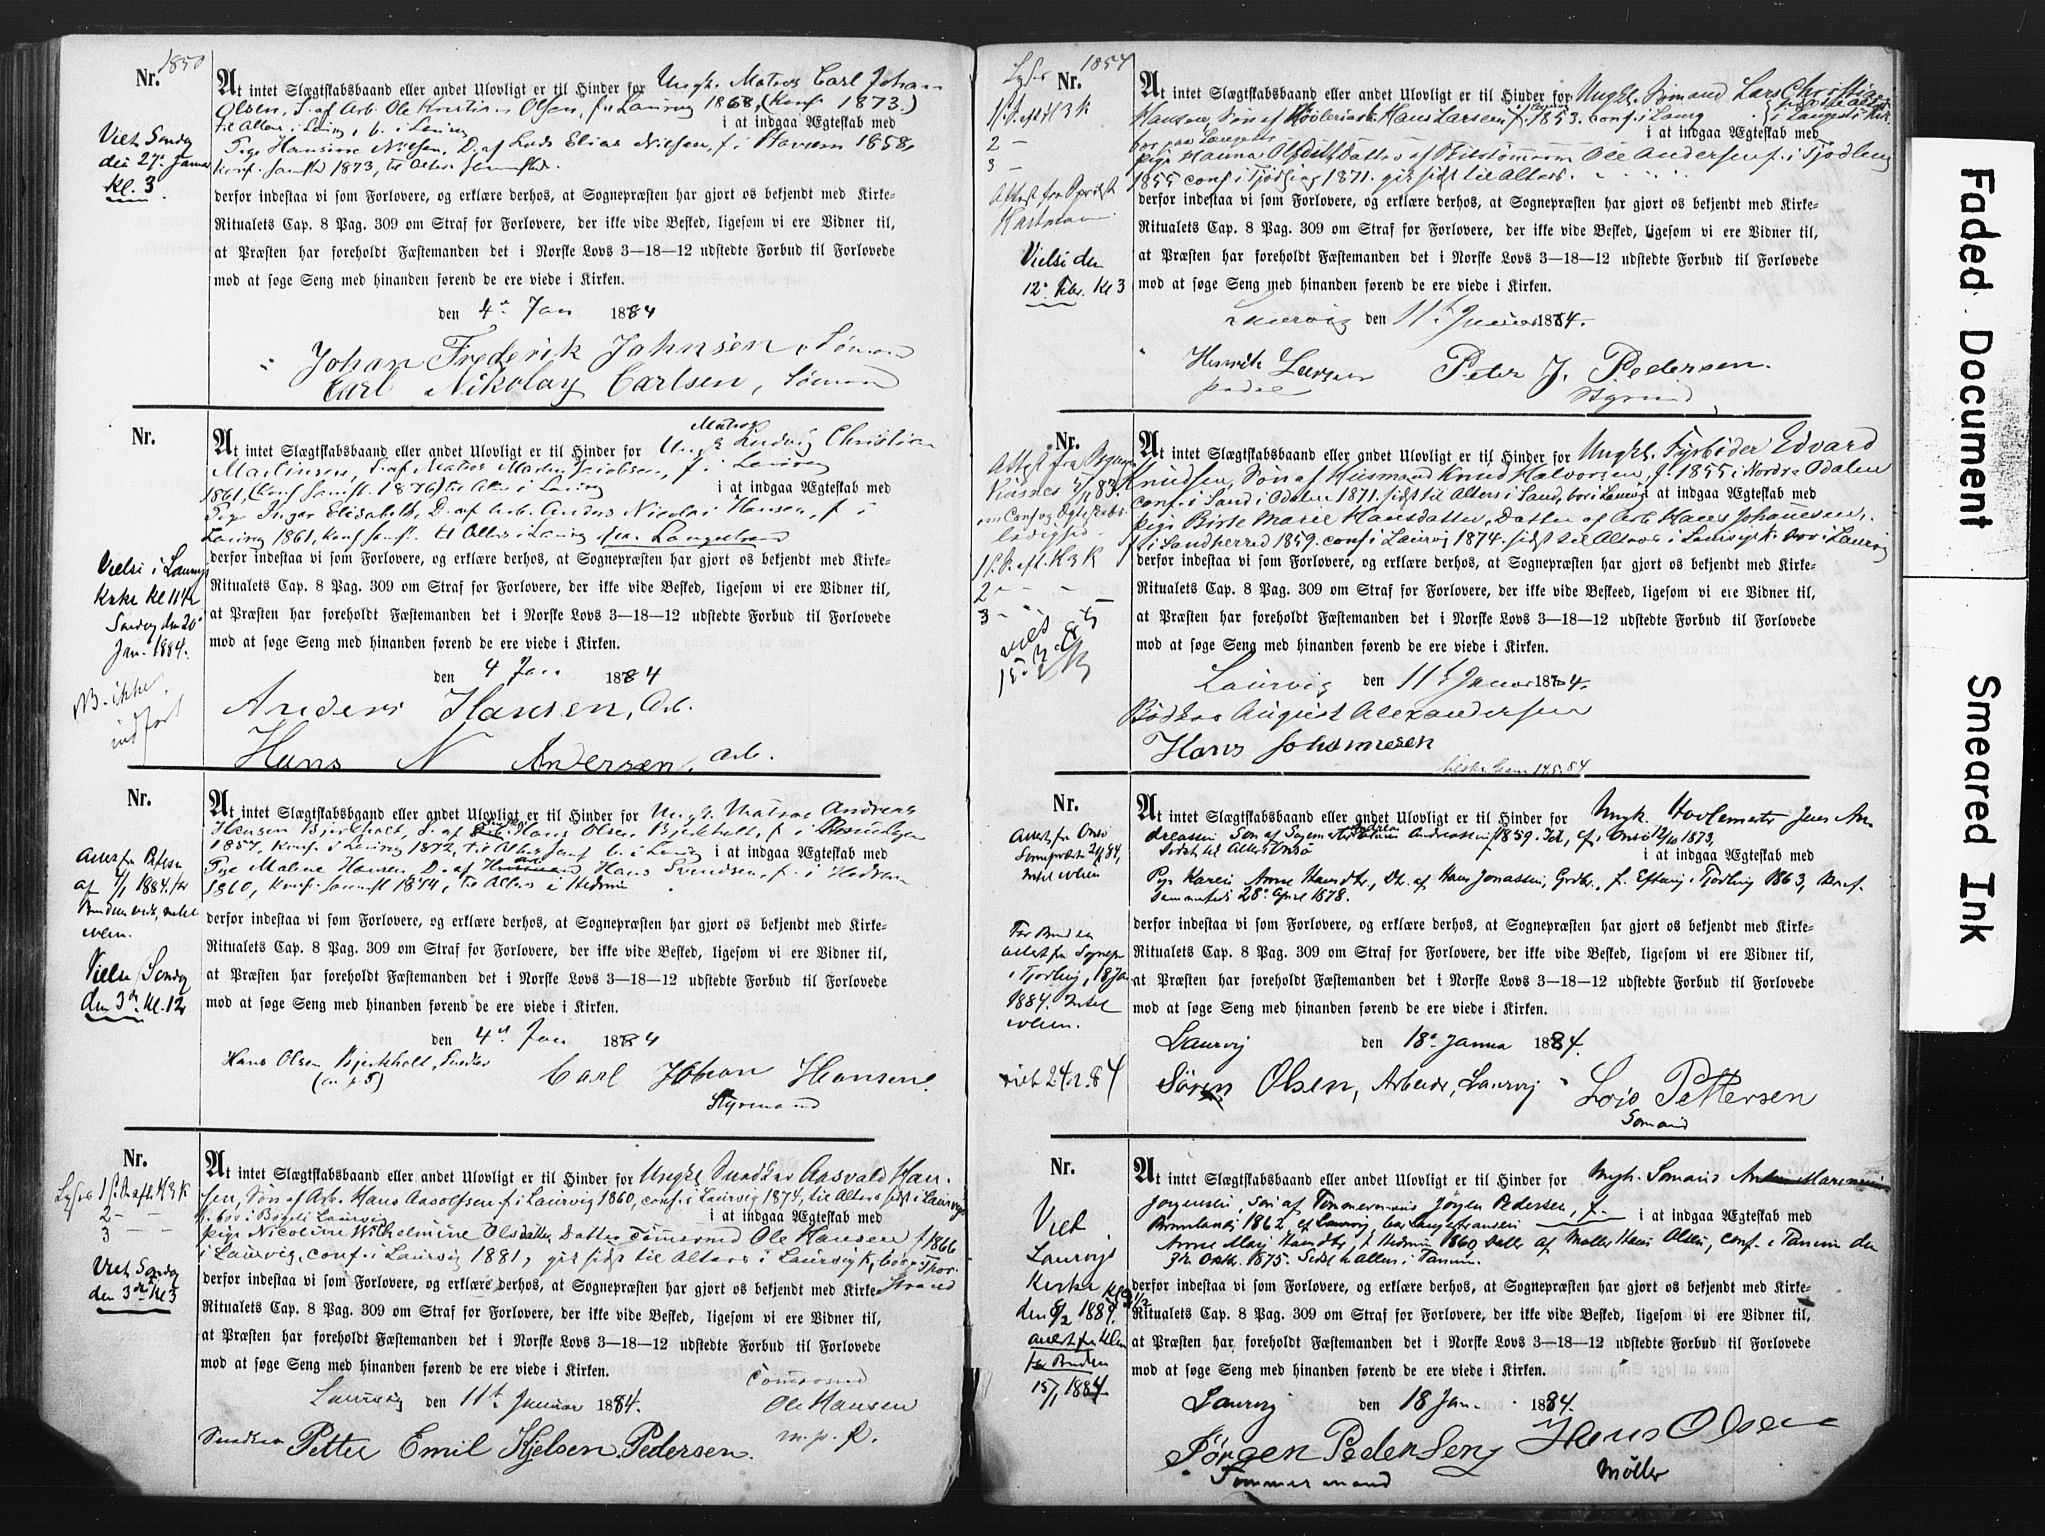 1850
Nr.
At intet Slægtskabsbaand eller andet Ulovligt er til Hinder for Ungk. Matros Carl Johan
Olsen, S. af Arb. Ole Kristian Olsen, f. i Laurvig 1858, (Konf. 1873.)
til Alters i Laurvig, b. i Laurvig i at indgaa Ægteskab med
Pige Hansine Nielsen, D. af Elias Nielsen, f. i Stavern 1858,
Konf. sammested 1873, til Alters sammested.
Viet Søndag
den 27. Januar
Kl. 3.
derfor indestaa vi som Forlovere, og erklære derhos, at Sognepræsten har gjort os bekjendt med Kirke-
Ritualets Cap. 8 Pag. 309 om Straf for Forlovere, der ikke vide Besked, ligesom vi ere Vidner til,
at Præsten har foreholdt Fæstemanden det i Norske Lovs 3—18—12 udstedte Forbud til Forlovede
mod at søge Seng med hinanden førend de ere viede i Kirken.
den 4. Jan 1884
Johan Frederik Johnsen, Sømand
Carl Nikolay Carlsen, Sømand
Nr.
Matros
At intet Slægtskabsbaand eller andet Ulovligt er til Hinder for Ungk. Ludvig Christian
Martinsen, S. af Matros Martin Jacobsen, f. i Laurvig
1861, (Konf. samst. 1876) til Alters i Laurvig i at indgaa Ægteskab med
Pige Inger Elisabeth, D. af Arb. Anders Nicolai Hansen, f. i
Laurvig 1861, Konf. samst. til Alters i Laurvig Langestrand
Vielse i Laurvigs
Kirke Kl 11 1/2
Søndag den 20.
Jan. 1884.
NB. ikke
indført
derfor indestaa vi som Forlovere, og erklære derhos, at Sognepræsten har gjort os bekjendt med Kirke-
Ritualets Cap. 8 Pag. 309 om Straf for Forlovere, der ikke vide Besked, ligesom vi ere Vidner til,
at Præsten har foreholdt Fæstemanden det i Norske Lovs 3—18—12 udstedte Forbud til Forlovede
mod at søge Seng med hinanden førend de ere viede i Kirken.
den 4 Jan 1884
Anders Hansen, Arb.
Hans N Andersen, arb.
Nr.
At intet Slægtskabsbaand eller andet Ulovligt er til Hinder for Ungk. Matros Andreas
Hansen Bjerkholt, S. af Snedker Hans Olsen Bjerkholt, f. i
1857, Konf. i Laurvig 1872, til Alters samst. b. i Laurvig i at indgaa Ægteskab med
Pige Malene Hansen, D. af Hans Svendsen, f. i Hedrum
1860, Konf. sammst 1874, til Alters i Hedrum
Attest fra
af 1884 for
Bruden vedr. intet
iveien.
Vielse Søndag
den 3die Kl. 12
derfor indestaa vi som Forlovere, og erklære derhos, at Sognepræsten har gjort os bekjendt med Kirke-
Ritualets Cap. 8 Pag. 309 om Straf for Forlovere, der ikke vide Besked, ligesom vi ere Vidner til,
at Præsten har foreholdt Fæstemanden det i Norske Lovs 3—18—12 udstedte Forbud til Forlovede
mod at søge Seng med hinanden førend de ere viede i Kirken.
den 4de Jan 1884
Hans Olsen Bjerkholt, Snedker
Carl Johan Hansen
Styrmand
Nr.
At intet Slægtskabsbaand eller andet Ulovligt er til Hinder for Ungk. Snedker Aasvald Han-
sen, Søn af Arb. Hans Aasolfsen f. i Laurvig 1860, conf. i Laurvig 1874, til Alters sidst i Laurvigs
k. bor i Bøgeli Laurvig i at indgaa Ægteskab med
Pige Nicoline Wilhelmine Olsdatter, Datter Tømmermd Ole Hansen f. 1866
i Laurvig, conf. i Laurvig 1881, gik sidst til Alters i Laurvig K, bor i Thor-
strand
Lyses 1 S. D. aft. H 3 K
2 — —
3 — —
Viet Søndag
den 3die Kl 3
derfor indestaa vi som Forlovere, og erklære derhos, at Sognepræsten har gjort os bekjendt med Kirke-
Ritualets Cap. 8 Pag. 309 om Straf for Forlovere, der ikke vide Besked, ligesom vi ere Vidner til,
at Præsten har foreholdt Fæstemanden det i Norske Lovs 3—18—12 udstedte Forbud til Forlovede
mod at søge Seng med hinanden førend de ere viede i Kirken.
Laurvig den 11te Januar 1884.
Tømmermd
Ole Hansen
m. p. P.
Snedker Petter Emil Kjelsen Pedersen.
1854
Lyses
Nr.
At intet Slægtskabsbaand eller andet Ulovligt er til Hinder for Ungk. Sømand Lars Christian
Hansen, Søn af Høvleriarb. Hans Larsen f. 1853. conf. i Laurvig
bor paa Langestr i at indgaa Ægteskab med
Pige Hanna Olsdatter, Datter af Bestømann Ole Andersen f. i Tjødling
1855 conf. i Tjødling 1871. gik sidst til Alters
2 —
3 —
Attest fra
Hartmann.
Vielse den
12. Febr. Kl 3
derfor indestaa vi som Forlovere, og erklære derhos, at Sognepræsten har gjort os bekjendt med Kirke-
Ritualets Cap. 8 Pag. 309 om Straf for Forlovere, der ikke vide Besked, ligesom vi ere Vidner til,
at Præsten har foreholdt Fæstemanden det i Norske Lovs 3—18—12 udstedte Forbud til Forlovede
mod at søge Seng med hinanden førend de ere viede i Kirken.
Laurvig den 11te Januar 1884.
Henrik Larsen
Peter J. Pedersen.
Styrmd
Nr.
At intet Slægtskabsbaand eller andet Ulovligt er til Hinder for Ungk. Fyrbøder Edvard
Knudsen, Søn af Husmand Knud Halvorsen, f. 1855 i Nordre Odalen
conf. i Sand i Odalen 1871. sidst til Alters i Sand, bor i Laurvig i at indgaa Ægteskab med
Pige Birte Marie Hansdatter, Datter af Arb. Hans Johanesen,
f. i Sandherred 1859. conf. i Laurvig 1874. sidst til Alters i Laurvig K. bor i Laurvig
Attest fra Sogne
om Conf og Ægteskabs-
ledighed
1 S. D. aft. H 3 K
2 — —
3 —
viet
15.
derfor indestaa vi som Forlovere, og erklære derhos, at Sognepræsten har gjort os bekjendt med Kirke-
Ritualets Cap. 8 Pag. 309 om Straf for Forlovere, der ikke vide Beskeed, ligesom vi ere Vidner til,
at Præsten har foreholdt Fæstemanden det i Norske Lovs 3—18—12 udstedte Forbud til Forlovede
mod at søge Seng med hinanden førend de ere viede i Kirken.
Laurvig den 11te Januar 1884.
Bødker August Alexandersen
Hans Johannesen
Nr.
At intet Slægtskabsbaand eller andet Ulovligt er til Hinder for Ungk. Hovlemester Jens An-
dreassen Søn af Sagmester Andreassen f. 1859. cf. Onsø 12/10 1873,
Sidst til Alters Onsø i at indgaa Ægteskab med
Pige Karen Anne Hansdtr., Dtr. af Hans Jonassen, Grdbr., f. Efteraar i Tjødling 1863, Konf.
Sammesteds 28. April 1878.
Attest fra Onsø
Sognepræst
intet iveien
For Bruden
attest fra Sognepr
i Tjødling, 18 Jan
1884. Intet
iveien.
viet 24.2.84
derfor indestaa vi som Forlovere, og erklære derhos, at Sognepræsten har gjort os bekjendt med Kirke-
Ritualets Cap. 8 Pag. 309 om Straf for Forlovere, der ikke vide Besked, ligesom vi ere Vidner til,
at Præsten har foreholdt Fæstemanden det i Norske Lovs 3—18—12 udstedte Forbud til Forlovede
mod at søge Seng med hinanden førend de ere viede i Kirken.
Laurvig den 18. Janua 1884.
Søren Olsen, Arbeider, Laurvig
Lois Pettersen
Sømand
Nr.
At intet Slægtskabsbaand eller andet Ulovligt er til Hinder for Ungk. Sømand Anton Marinius
Jørgensen, Søn af Tømmermand Jørgen Pedersen, f. i at indgaa Ægteskab med
Brunlanes 1862, cf Laurvig, bor Langestranden
Anne Marj Hansdtr, f. Hedrum 1860, Datter af Møller Hans Olsen, conf. i Tanum den
Oktbr. 1875. Sidst til alters i Tanum.
Viet
Laurvigs
Kirke
den 8/2 1884.
attest fra Kln
for Bruden
15/1 1884
derfor indestaa vi som Forlovere, og erklære derhos, at Sognepræsten har gjort os bekjendt med Kirke-
Ritualets Cap. 8 Pag. 309 om Straf for Forlovere, der ikke vide Besked, ligesom vi ere Vidner til,
at Præsten har foreholdt Fæstemanden det i Norske Lovs 3—18—12 udstedte Forbud til Forlovede
mod at søge Seng med hinanden førend de ere viede i Kirken.
Laurvig den 18 Jan. 1884.
Jørgen Pedersen,
Tømmermand
Hans Olsen
Møller
Faded Document
Smeared Ink